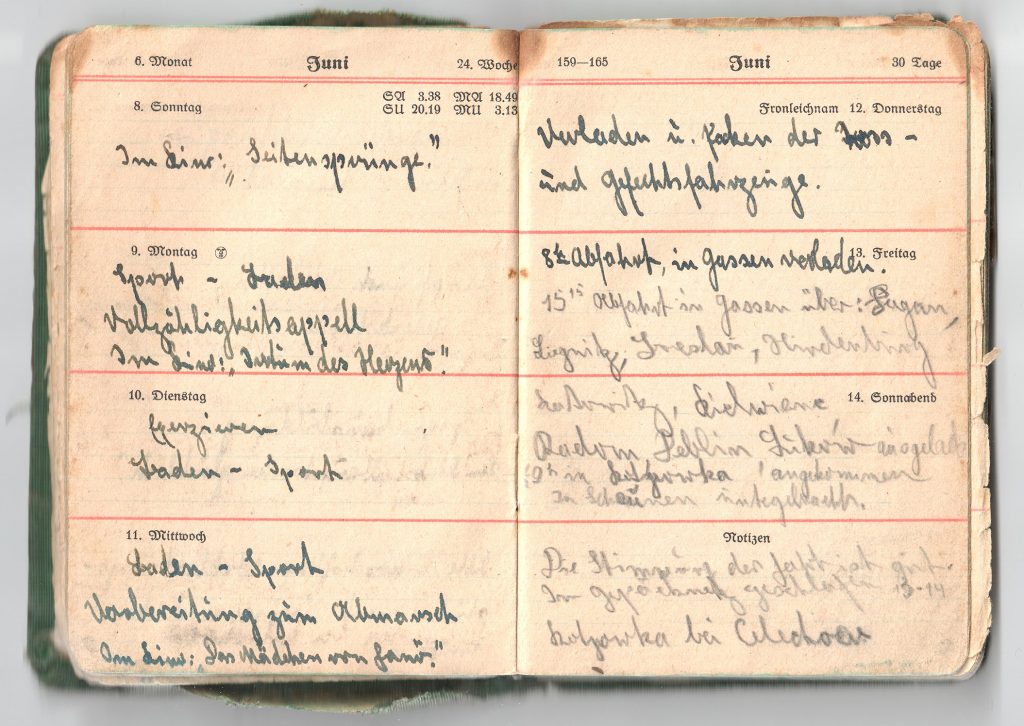 6. Monat Juni 24. Woche
8. Sonntag SA 3.38 MA 18.49
SU 20.19 MU 3.13
Im Kino: „Seitensprünge."
9. Montag
Sport - Baden
Vollzähligkeitsappell
Im Kino: „Irrtum des Herzens."
10. Dienstag
Exerzieren
Baden - Sport
11. Mittwoch
Baden - Sport
Vorbereitung zum Abmarsch
Im Kino: „Das Mädchen von Fanö."
159–165 Juni 30 Tage
Fronleichnam 12. Donnerstag
Verladen u. packen der Tross -
und Gefechtsfahrzeuge.
13. Freitag
Abfahrt, in Gassen verladen.
15 15 Abfahrt in Gassen über: Sagan,
Liegnitz, Breslau, Hindenburg
14. Sonnabend
Kattowitz,
Radom Deblin Lukow ausgeladen
in angekommen
In Scheunen untergebracht.
Notizen
Die Stimmung der Fahrt ist gut.
Im geschlafen 13-14
bei